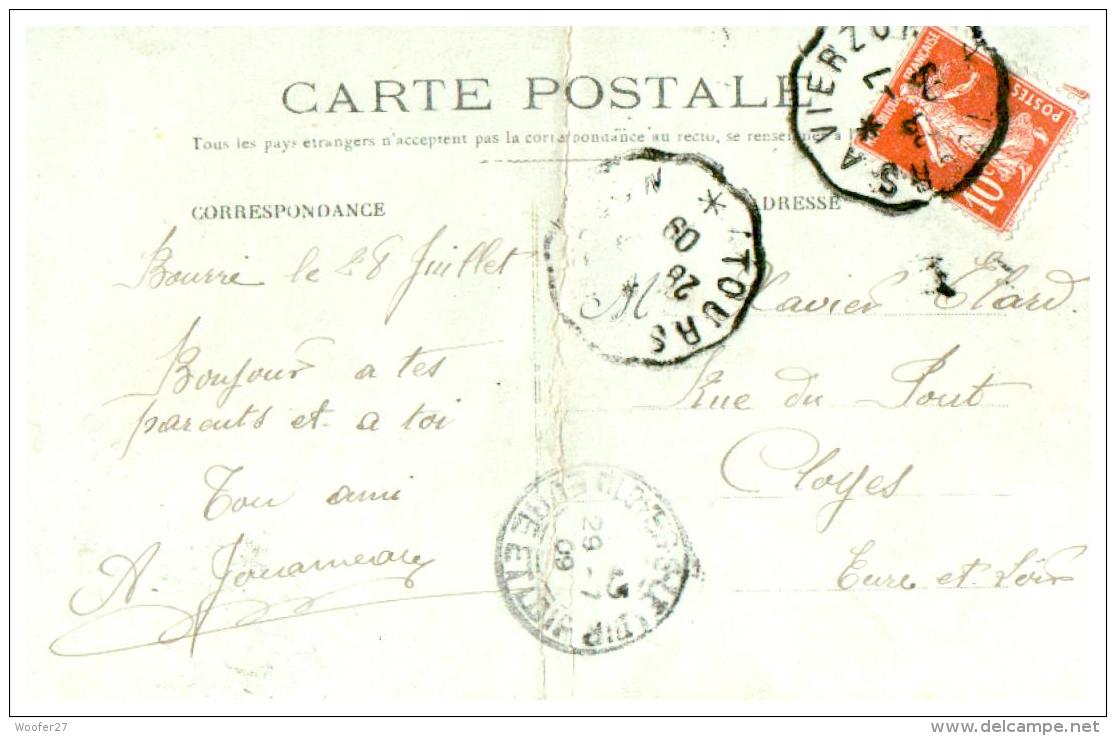 CARTE POSTALE
Tous les pays étrangers n'acceptent pas la correspondance au recto, se
CORRESPONDANCE
ADRESSE
Bourré le 28 Juillet
Bonjour a tes
parents et a toi
Ton ami
A.
M
Xavier
Rue du Pont
Cloyes
Eure et Loir
TOURS A VIERZON
TOURS
28
09
29 - 7
09
EURE ET LOIR
FRANÇAISE
POSTES
10c
Woofer27
delcampe.net